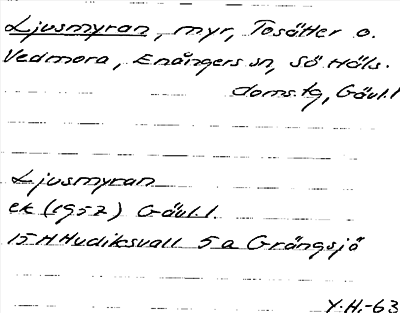 Ljusmyran, myr, Tosätter o.
Vedmora, Enångers sn, Sö Häls.
doms.tg, Gävl.l
Ljusmyran
ek (1952) Gävl.l.
15 H Hudiksvall 5 a Grängsjö
Y.H.-63